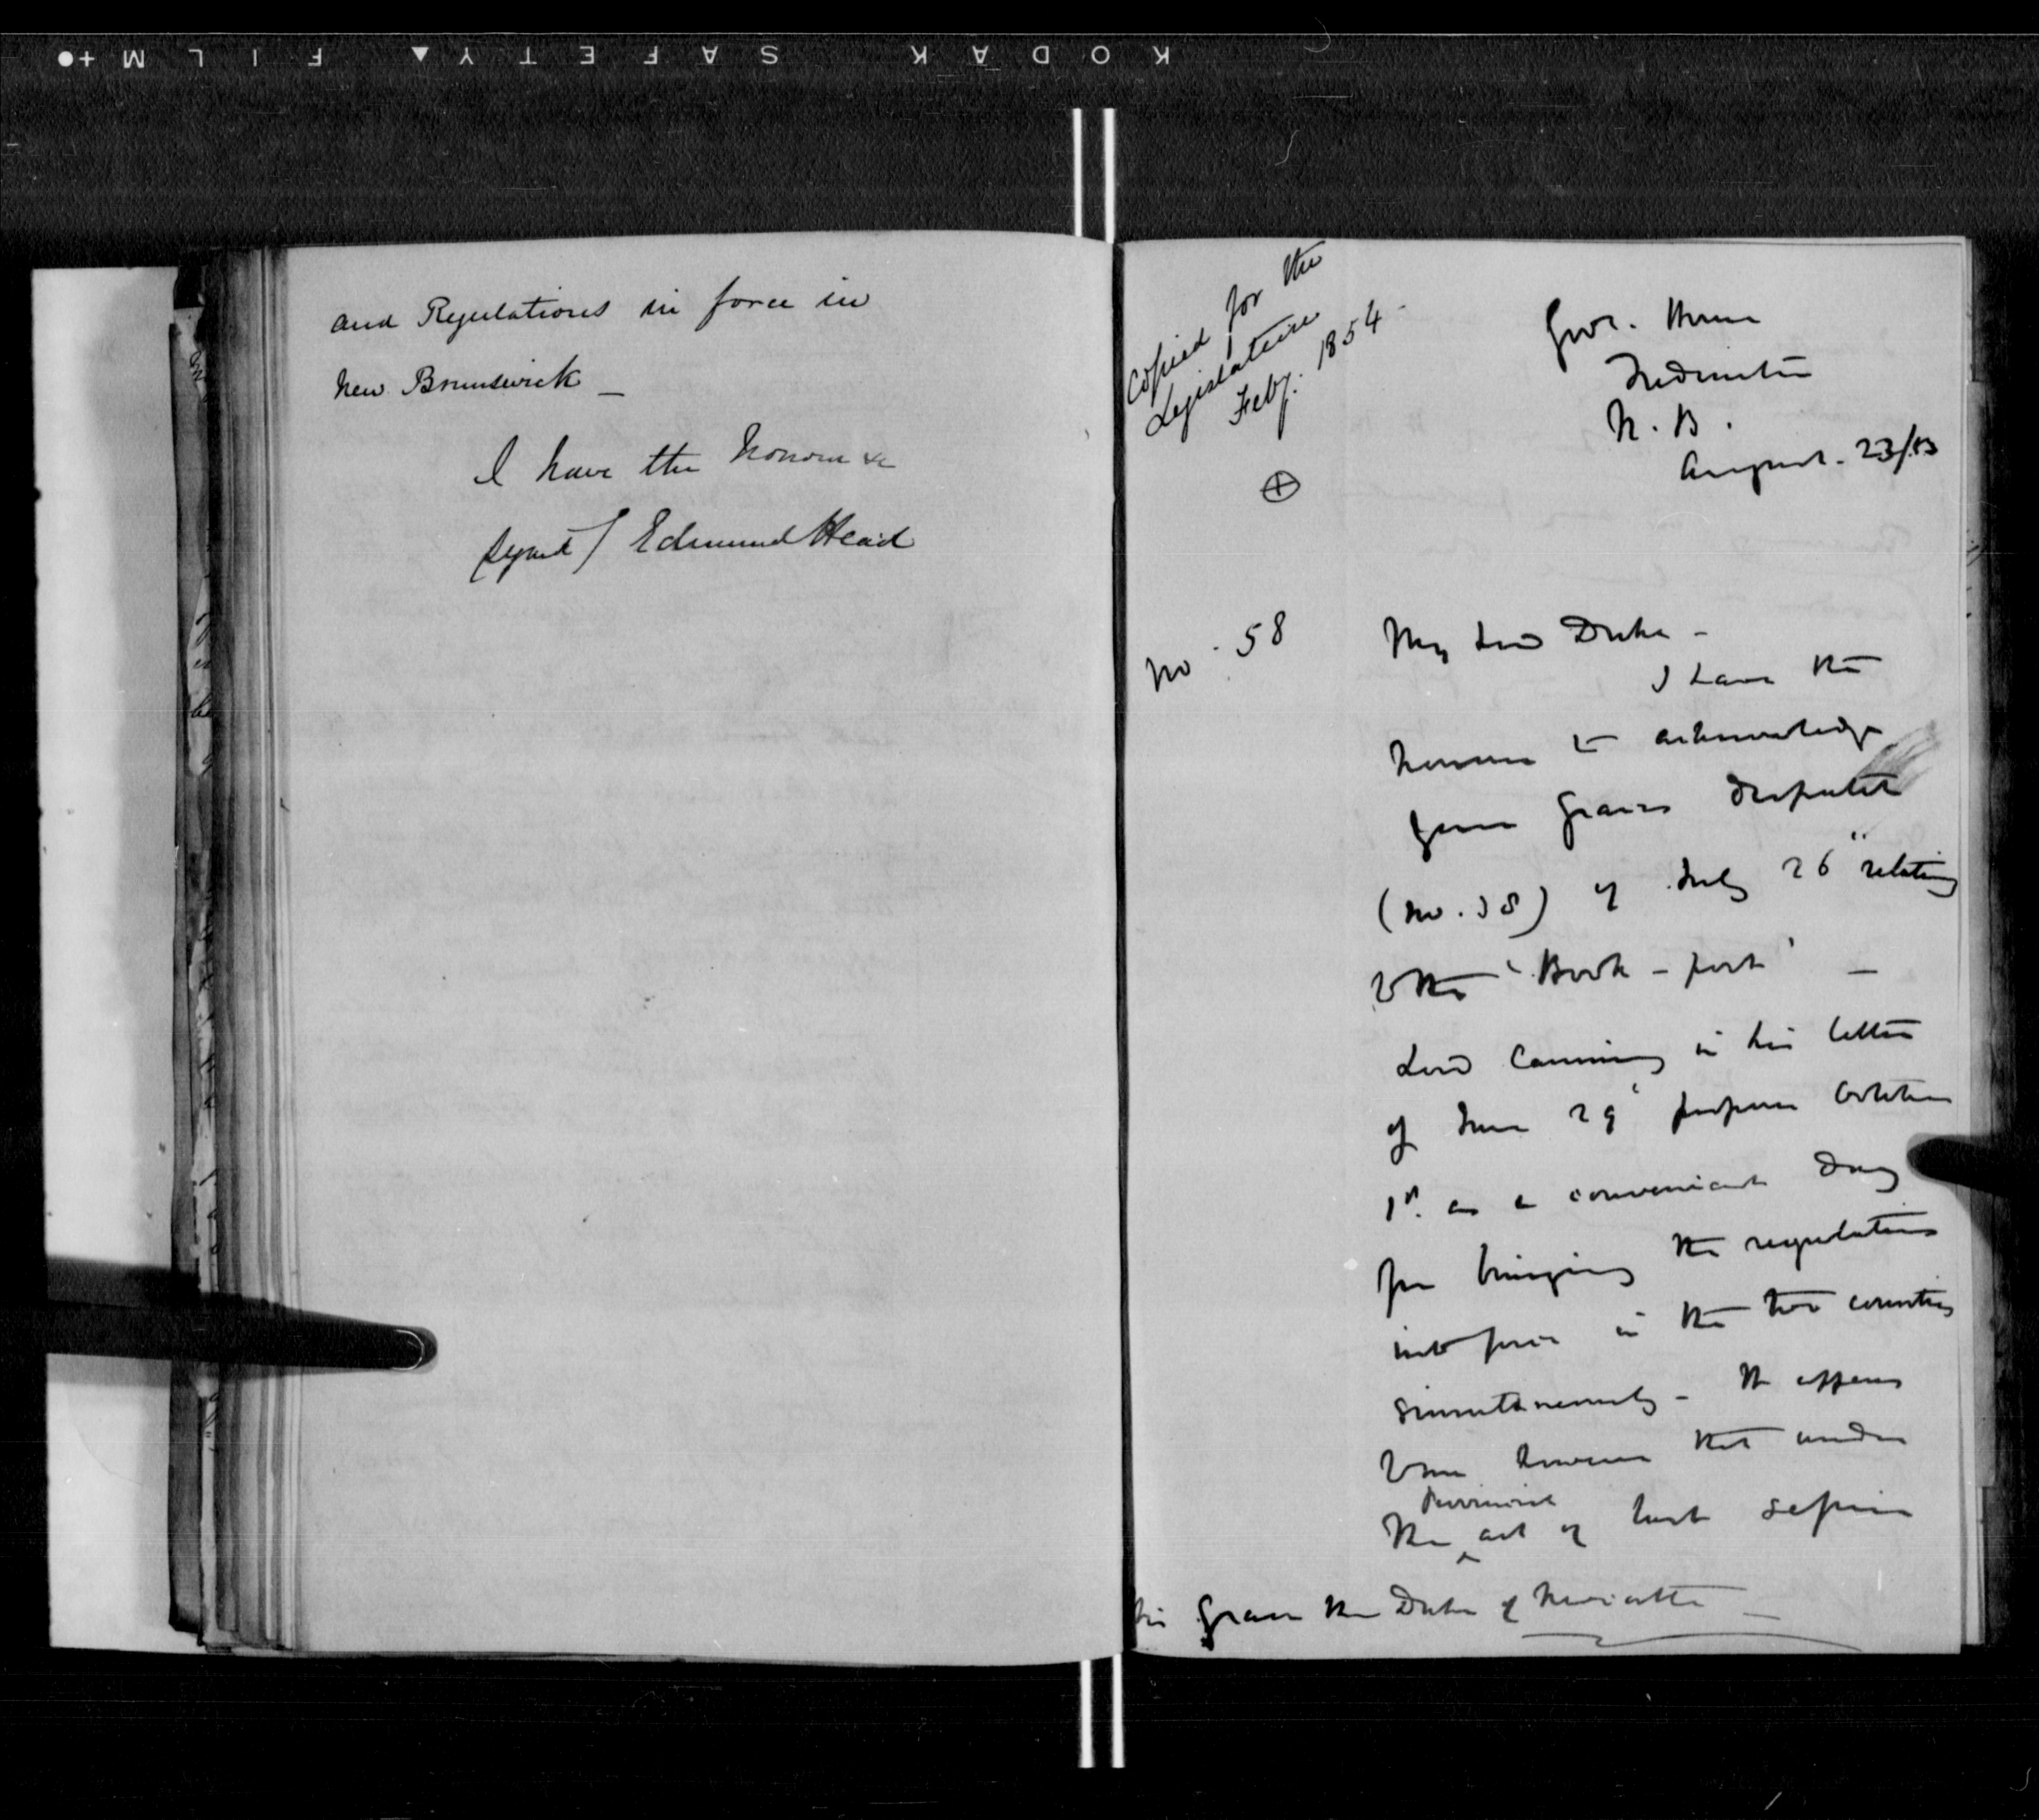 KODAK SAFETY FILM
and Regulations in force in
New Brunswick _
I have the honour &c
signed / Edmund Head
Copied for the
Legislature
Feby. 1854
Govt. House
Fredericton
N. B.
August. 23/53
No. 58
My Lord Duke -
I have the
honour to acknowledge
your Graces Despatch
(No. 38) of July 26" relating
to the 'Book-post' _
Lord Canning in his letter
of June 29' proposes October
1st. as a convenient day
for bringing the regulations
into force in the two countries
simultaneously - It appears
to me however that under
the Provincial act of last session
his Grace the Duke of Newcastle _